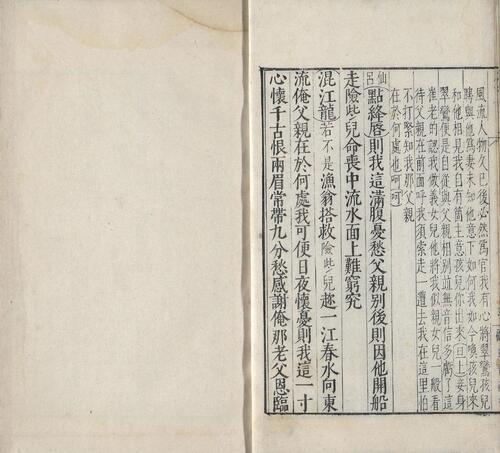 風流人物久已後必然為官我有心將翠鸞孩兒
聘與他為妻未知他意下如何我如今喚孩兒來
和他相見我自有箇主意孩兒你出來正旦上妾身
翠鸞便是自從與父親相別並無音信多虧了這
崔老的認我做義女兒他將我似親女兒一般看
待父親在前面呼我須索走一遭去我在這里怕
不打緊知我那父親
在於何處也呵呵
仙呂點絳唇則我這滿腹憂愁父親別後則因他開船
走險些兒命喪中流水面上難窮究
混江龍若不是漁翁搭救險些兒趂一江春水向東
流俺父親在於何處我可便日夜懷憂則我這一寸
心懷千古恨兩眉常帶九分愁感謝俺那老父恩臨